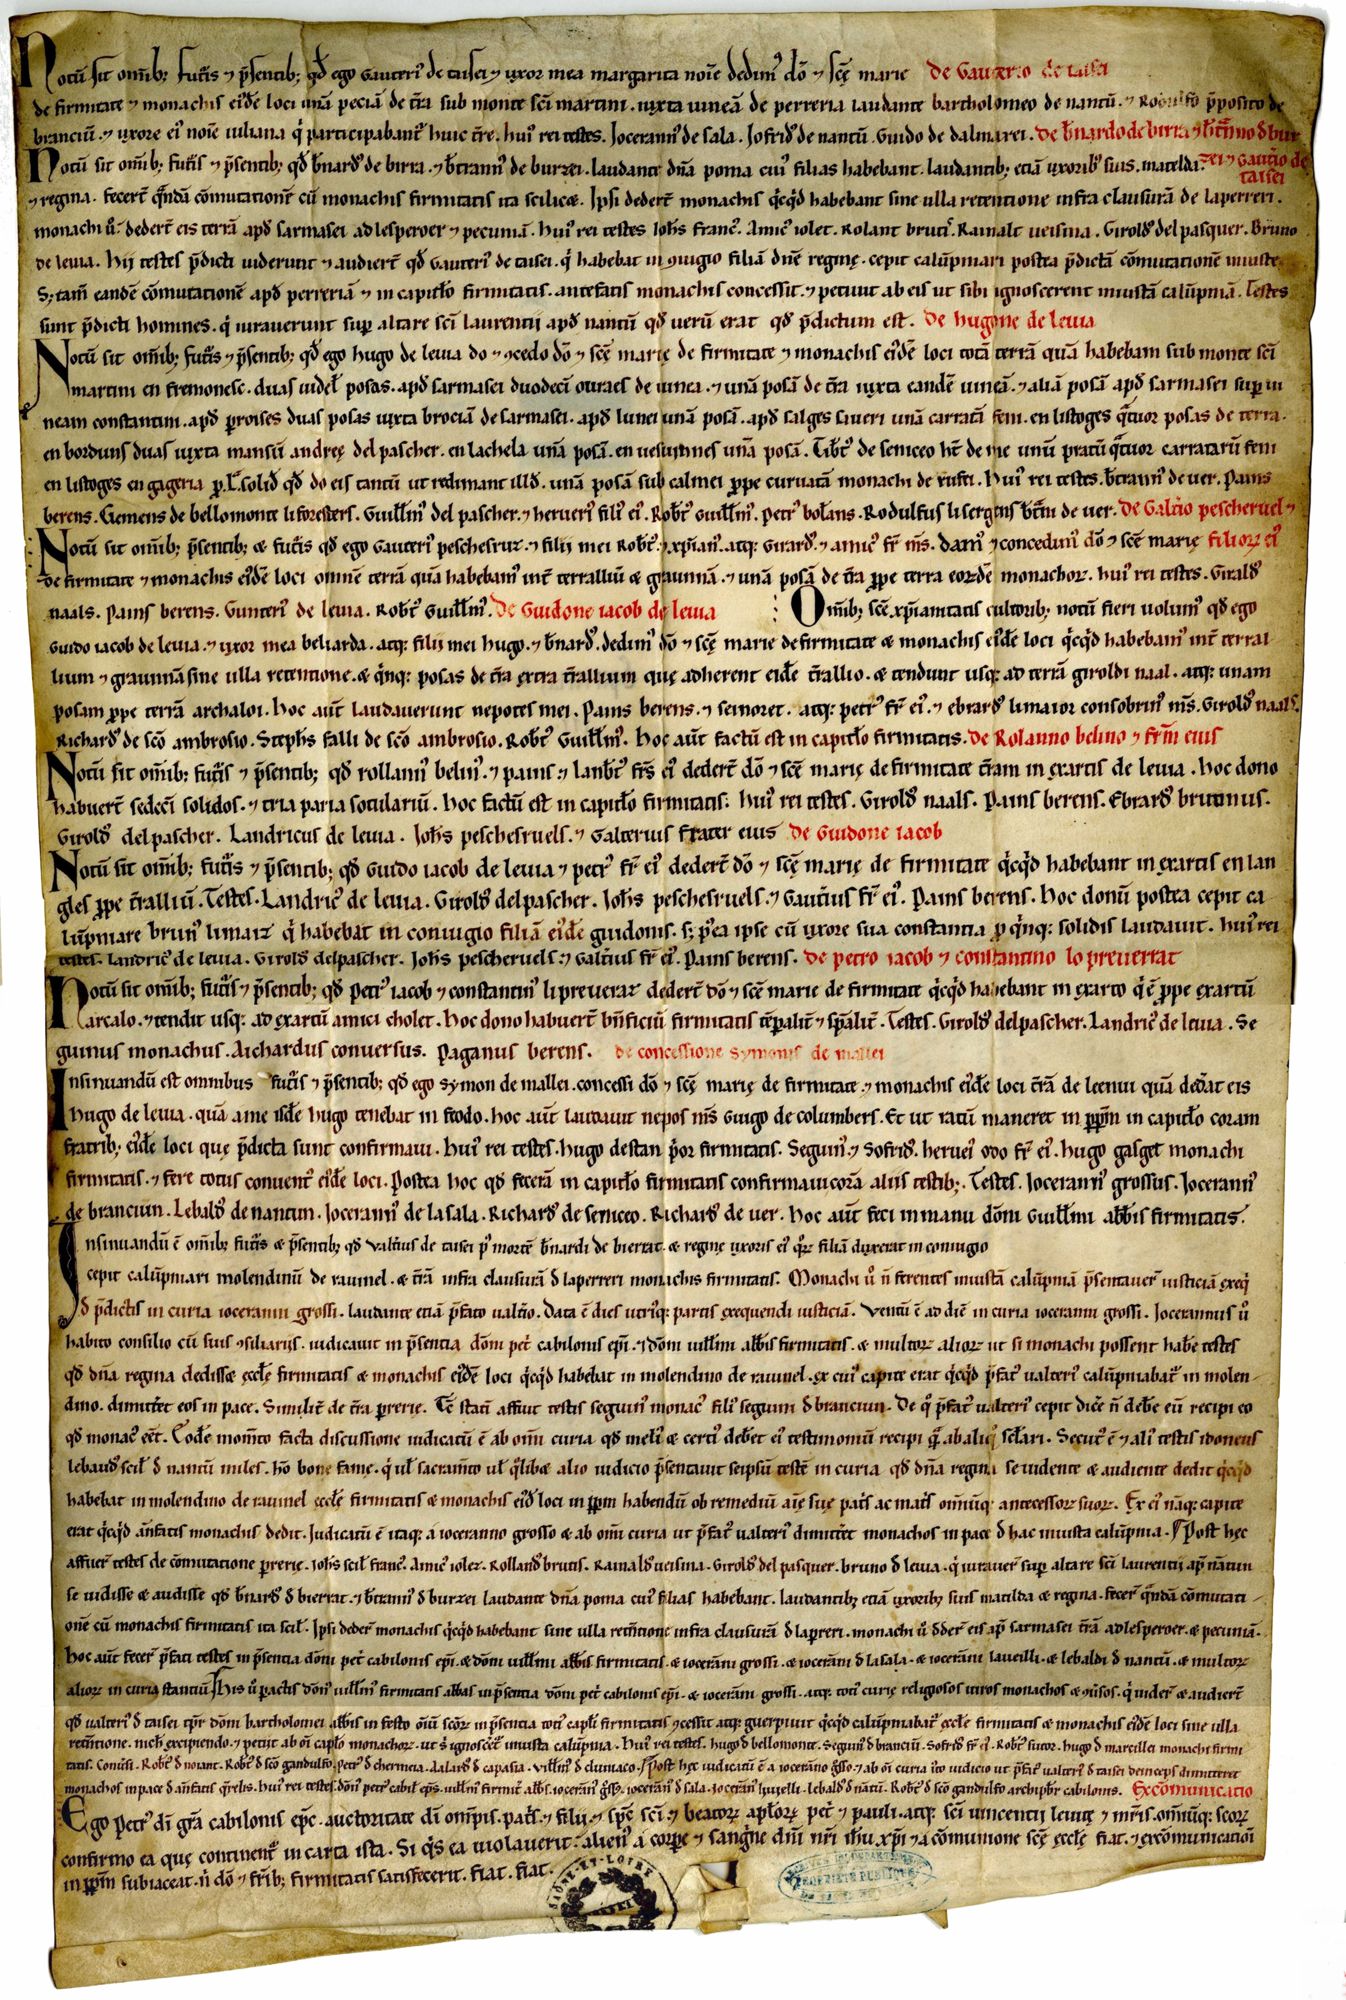 Notũ sit omĩb; futꝛis ⁊ p̃sentib; qđ ego Gauteri᷒ de taisei ⁊ uxor mea margarita noĩe dedim᷒ dõ ⁊ scę̃ marie de Gauterio de taisei
de firmitate ⁊ monachis ei᷒dẽ loci unã peciã de t̃ra sub monte sc̃i martini . iuxta uineã de perreria laudante bartholomeo de nantũ . ⁊ Rodulfo p̃posito de
branciũ . ⁊ uxore ei᷒ noĩe iuliana q̓ participabant᷒ huic t̃re . hui᷒ rei testes . Jocerann᷒ de sala . Jofrid᷒ de nantũ . Guido de dalmarei . De b̃nardo de birra ⁊ b̃tranno d̃ bur
Notũ sit omĩb; futꝛis ⁊ p̃sentib; qđ b̃nard᷒ de birra . ⁊ b̃trann᷒ de burzei . laudante dñã poma cui᷒ filias habebant . laudantib; etiã uxorib᷒ suis . matelda . zei ⁊ Gaut̃io de taisei
⁊ regina . fecer̃t q̃ndã cõmutationẽ cũ monachis firmitatis ita scilicæ . Ipsi deder̃t monachis q̓cq̓d habebant sine ulla retentione infra clausurã de laperreri .
monachi u᷒ . deder̃t eis terrã apđ sarmasei ad lesperoer ⁊ pecuniã . hui᷒ rei testes Ioh̃s franc᷒ . Amic᷒ iolet . Rolant bruti᷒ . Rainalt ueisina . Girold᷒ del pasquer . Bruno
de leuia . Hij testes p̃dicti uiderunt ⁊ audier̃t qđ Gauteri᷒ de taisei . q̓ habebat in ꝯiugio filiã dñe reginę . cepit calũpniari postea p̃dictã cõmutationẽ iniuste .
S; tam̃ eandẽ cõmutationẽ apđ perreriã ⁊ in capitł̃o firmitatis . antefatis monachis concessit . ⁊ petiuit ab eis ut sibi ignoscerent iniustã calũpniã . Testes
sunt p̃dicti homines . q̓ iurauerunt sup altare sc̃i laurentii apđ nantũ qđ uerũ erat qđ p̃dictum est . De hugone de leuia
Notũ sit omĩb; futꝛis ⁊ p̃sentib; qđ ego hugo de leuia do ⁊ ꝯcedo dõ ⁊ scę̃ marię de firmitate ⁊ monachis ei᷒dẽ loci totã terrã quã habebam sub monte sc̃i
martini en fremonesc . duas uidel̃ posas . apđ sarmasei duodeci̇̃ ouraes de uinea . ⁊ unã posã de t̃ra iuxta eandẽ uineã . ⁊ aliã posã apđ sarmasei sup ui
neam constantini . apđ ꝑroises duas posas iuxta brociã de sarmasei . apđ lunei unã posã . apđ salges saueri unã carratã feni . en listoges q̃tuor posas de terra .
en borduns duas iuxta mansũ andreę del pascher . en lachela unã posã . en uesuines unã posã . Tib̃t᷒ de seniceo ht̃ de me unũ pratũ q̃tuor carratarũ feni
en listoges en gageria ꝑ . L᷒ . solid̃ qđ do eis tantũ ut redimant illđ . unã posã sub calmei ꝓpe curuatã monachi de rufei . Hui᷒ rei testes . b̃trann᷒ de uer . Pains
berens . Clemens de bellomonte li foresters . Guill̃m᷒ del pascher . ⁊ herueri᷒ fili᷒ ei᷒ . Rob̃t᷒ Guill̃m᷒ . Petr᷒ bolans . Rodulfus li sergens b̃tr̃m᷒ de uer . De Galt̃io pescheruel ⁊
Notũ sit omĩb; p̃sentib; æ futꝛis qđ ego Gauteri᷒ peschesruz . ⁊ filij mei Rob̃t᷒ . ⁊ xp̃ian᷒ . atq; Girard᷒ . ⁊ amic᷒ fr̃ m̃s . Dam᷒ ⁊ concedim᷒ dõ ⁊ scę̃ marię filioꝝ ei᷒
de firmitate ⁊ monachis ei᷒dẽ loci omnẽ terrã quã habebam᷒ int̃ terralliũ æ graunnã . ⁊ unã posã de t̃ra ꝓpe terra eorđẽ monachoꝝ . hui᷒ rei testes . Girald᷒
naals . Pains berens . Gunteri᷒ de leuia . Rob̃t᷒ Guill̃m᷒ . De Guidone iacob de leuia Omĩb; scę̃ xp̃ianitatis cultorib; notũ fieri uolum᷒ qđ ego
Guido iacob de leuia . ⁊ uxor mea beliarda . atq; filii mei hugo . ⁊ b̃nard᷒ . dedim᷒ dõ ⁊ scę̃ marie de firmitate æ monachis ei᷒dẽ loci q̓cq̓d habebam᷒ int̃ terral
lium ⁊ graunnã sine ulla retentione . æ q̓nq; posas de t̃ra extra t̃rallium quę adherent eidẽ t̃rallio . æ tendunt usq; ad terrã giroldi naal . atq; unam
posam ꝓpe terrã archaloi . Hoc aut̃ laudauerunt nepotes mei . Pains berens . ⁊ seinoret . atq; petr᷒ fr̃ ei᷒ . ⁊ ebrard᷒ li maior consobrin᷒ m̃s . Girold᷒ naals .
Richard᷒ de sc̃o ambrosio . Steph̃s falli de sc̃o ambrosio . Rob̃t᷒ Guill̃m᷒ . Hoc aut̃ factũ est in capitł̃o firmitatis . de Rolanno belino ⁊ fr̃m eius
Notũ sit omĩb; futꝛis ⁊ p̃sentib; qđ rollann᷒ belin᷒ . ⁊ pains . ⁊ lanb̃t᷒ fr̃s ei᷒ deder̃t dõ ⁊ scę̃ marię de firmitate t̃ram in exartis de leuia . hoc dono
habuer̃t sedeci̇̃ solidos . ⁊ tria paria sotulariũ . Hoc factũ est in capitł̃o firmitatis . hui᷒ rei testes . Girold᷒ naals . Pains berens . Ebrard᷒ brutinus .
Girold᷒ del pascher . Landricus de leuia . Ioh̃s peschesruels . ⁊ Galterius frater eius de Guidone iacob
Notũ sit omĩb; futꝛis ⁊ p̃sentib; qđ Guido iacob de leuia ⁊ petr᷒ fr̃ ei᷒ deder̃t dõ ⁊ scę̃ marię de firmitate q̓cq̓d habebant in exartis en lan
gles ꝓpe t̃ralliũ . Testes . Landric᷒ de leuia . Girold᷒ del pascher . Ioh̃s peschesruels . ⁊ Gaut̃ius fr̃ ei᷒ . Pains berens . Hoc donũ postea cepit ca
lũpniare brun᷒ li mairz q̓ habebat in coniugio filiã ei᷒dẽ guidonis . s; p᷒ea ipse cũ uxore sua constantia ꝑ q̓nq; solidis laudauit . hui᷒ rei
testes . Landric᷒ de leuia . Girold᷒ del pascher . Ioh̃s pescheruels . ⁊ Galt̃ius fr̃ ei᷒ . Pains berens . de petro iacob ⁊ constantino lo preuerrat
Notũ sit omĩb; futꝛis ⁊ p̃sentib; qđ Petr᷒ iacob ⁊ constantin᷒ li preueraz deder̃t dõ ⁊ scę̃ marie de firmitate q̓cq̓d habebant in exarto q̓ ẽ ꝓpe exartũ
arcalo . ⁊ tendit usq; ad exartũ amici cholet . Hoc dono habuer̃t bñficiũ firmitatis tẽpalit̃ ⁊ sp̃alit̃ . Testes . Girold᷒ del pascher . Landric᷒ de leuia . Se
guinus monachus . Aichardus conuersus . Paganus berens . de concessione Symonis de mallei
Insinuandũ est omnibus futꝛis ⁊ p̃sentib; qđ ego Symon de mallei . concessi dõ ⁊ scę̃ marię de firmitate . ⁊ monachis ei᷒dẽ loci t̃rã de leenui quã deđat eis
hugo de leuia . quã a me isdẽ hugo tenebat in feodo . hoc aut̃ laudauit nepos m̃s Guigo de columbers . Et ut ratũ maneret in ꝑpm̃ in capitł̃o coram
fratrib; ei᷒dẽ loci quę p̃dicta sunt confirmaui . Hui᷒ rei testes . Hugo destan p̃or firmitatis . Seguin᷒ . ⁊ Sofrid᷒ . heruei odo fr̃ ei᷒ . hugo gasget monachi
firmitatis . ⁊ fere totus conuent᷒ ei᷒dẽ loci . Postea hoc qđ fecerã in capitł̃o firmitatis confirmaui corã aliis testib; . Testes . Jocerann᷒ grossus . Jocerann᷒
de branciun . Lebald᷒ de nantun . Jocerann᷒ de lasala . Richard᷒ de seniceo . Richard᷒ de uer . Hoc aut̃ feci in manu dõni Guill̃mi abb̃is firmitatis .
Insinuandũ ẽ omĩb; futꝛis æ p̃sentib; qđ Valt̃ius de taisei p᷒ mortẽ b̃nardi de bierrat . æ reginę uxoris ei᷒ quoꝝ filiã duxerat in coniugio
cepit calũpniari molendinũ de rauinel . æ t̃rã infra clausurã d̃ laperreri monachis firmitatis . Monachi u᷒ ñ ferentes iniustã calũpniã p̃sentauer̃ iusticiã exeq̓
d̃ p̃dictis in curia ioceranni grossi . laudante etiã p̃fato ualt̃io . Data ẽ dies utriq; partis exequendi iusticiã . Ventũ ẽ ad diẽ in curia iocerann grossi . Jocerannus u᷒
habito consilio cũ suis ꝯsiliariis . iudicauit in p̃sentia dõni pet̃ cabilonis ep̃i . ⁊ dõni uill̃mi abb̃is firmitatis . æ multoꝝ alioꝝ ut si monachi possent hab̃e testes
qđ dñã regina dedissæ eccl̃e firmitatis æ monachis ei᷒dẽ loci q̓cq̓d habebat in molendino de rauinel . ex cui᷒ capite erat q̓cq̓d p̃fat᷒ ualteri᷒ calũpniabat᷒ in molen-
dino . dimitt̃et eos in pace . Similit̃ de t̃ra perrerie . Tc̃ statĩ affuit testis seguin᷒ monac᷒ fili᷒ seguini d̃ branciun . De q̓ p̃fat᷒ ualteri᷒ cepit dic̃e ñ deb̃e eũ recipi eo
qđ monac᷒ eẽt . Eodẽ mom̃to facta discussione iudicatũ ẽ ab om̃i curia qđ meli᷒ æ certi᷒ deb̃et ei᷒ testimoniũ recipi q̃ ab aliq᷒ sc̃lari . Secut᷒ ẽ ⁊ ali᷒ testis idoneus
lebaud᷒ scil̃ d̃ nantũ miles . hõ bone fame . q̓ ul̃ sacram̃to ul̃ q̓libæ alio iudicio p̃sentauit seipsũ testẽ in curia qđ dñã regina se uidente æ audiente dedit q̓cq̓d
habebat in molendino de rauinel eccl̃e firmitatis æ monachis ei᷒dẽ loci in ꝑpm̃ habendũ ob remediũ aĩe suę pat̃s ac mat̃s omniũq; antecessoꝝ suoꝝ . Ex ei᷒ nãq; capite
erat q̓cq̓d ãnfatis monachis dedit . Judicatũ ẽ itaq; a ioceranno grosso æ ab om̃i curia ut p̃fat᷒ ualteri᷒ dimitt̃et monachos in pace d̃ hac iniusta calũpnia . Post hęc
affuer̃ testes de cõmutatione perrerie . ioh̃s scil̃ franc᷒ . Amic᷒ iolez . Rolland᷒ brutis . Rainald᷒ ueisina . Girold᷒ del pasquer . bruno d̃ leuia . q̓ iurauer̃ sup altare sc̃i laurentii ap̃ nantun
se uidisse æ audisse qđ b̃nard᷒ d̃ bierrat . ⁊ b̃trann᷒ d̃ burzei laudante dñã poma cui᷒ filias habebant . laudantib; etiã uxorib; suis matilda æ regina . fecer̃ q̃ndã cõmutati-
onẽ cũ monachis firmitatis ita scil̃ . Ipsi deder̃ monachis q̓cq̓d habebant sine ulla ret̃ntione infra clausurã d̃ laperreri . monachi u᷒ dd̃er̃ eis ap̃ sarmasei t̃rã ad lesperoer . æ pecuniã .
Hoc aut̃ fecer̃ p̃fati testes in p̃sentia dõni pet̃ cabilonis ep̃i . æ dõni uill̃mi abb̃is firmitatis . æ iocerãni grossi . æ iocerãni d̃ lasala . æ iocerãni laueilli . æ lebaldi d̃ nantũ . æ multoꝝ
alioꝝ in curia stantiũ . His u᷒ ꝑactis dõn᷒ uill̃m᷒ firmitatis abbas in p̃sentia dõni pet̃ cabilonis ep̃i . æ iocerãni grossi . atq; toti᷒ curię religiosos uiros monachos æ ꝯũsos . q̓ uider̃ æ audier̃t
qđ ualteri᷒ d̃ taisei tp̃r dõni bartholomei abb̃is in festo om̃iũ sc̃oꝝ in p̃sentia toti᷒ capł̃i firmitatis ꝯcessit atq; guerpiuit q̓cq̓d calũpniabat᷒ eccl̃e firmitatis æ monachis ei᷒dẽ loci sine ulla
ret̃ntione . nich̃ excipiendo . ⁊ petijt ab õi capł̃o monachoꝝ . ut s᷒ ignosc̃et᷒ iniusta calũpnia . Hui᷒ rei testes . hugo d̃ bellomonte . Seguin᷒ d̃ branciũ . Sofrid᷒ fr̃ ei᷒ . Rob̃t᷒ sutor . hugo d̃ marcillei monachi firmi
tatis . Conũsi . Rob̃t᷒ d̃ noiant . Rob̃t᷒ d̃ sc̃o gandulfo . petr᷒ d̃ chermeia . Aalard᷒ d̃ capasia . uill̃m᷒ d̃ cluniaco . Post hęc iudicatũ ẽ a ioceranno g̃sso . ⁊ ab õi curia uto iudicio ut p̃fat᷒ ualt̃i᷒ d̃ taisei deinceps dimitteret
monachos in pace d̃ ãnfatis q̃relis . hui᷒ rei testes . dõn᷒ petr᷒ cabil̃ ep̃s . uill̃m᷒ firmit̃ abb̃s . iocerãn᷒ g̃ss᷒ . iocerãn᷒ d̃ sala . iocerãn᷒ lueilli . lebald᷒ d̃ nãtũ . Rob̃t᷒ d̃ sc̃o gandulfo archip̃br̃ cabilonis . Excõmunicatio
Ego Petr᷒ di᷒ gr̃a cabilonis ep̃c . auctoritate di᷒ om̃ipis . pat̃s ⁊ filii ⁊ sp̃c sc̃i . ⁊ beatoꝝ ap̃loꝝ pet̃ ⁊ pauli . atq; sc̃i uincentii leuitę ⁊ m̃ris . omniũq; sc̃oꝝ
confirmo ea quę continent᷒ in carta ista . Si q̓s ea uiolauerit . alien᷒ a corpe ⁊ sangñe dñi nr̃i ih̃u xp̃i ⁊ a cõmunione scę̃ eccl̃e fiat . ⁊ excõmunicationi
in ꝑpm̃ subiaceat . ñ dõ ⁊ fr̃ib; firmitatis satisfecerit . fiat . fiat .
SAÔNE-ET-LOIRE
PROPRIÉTÉ PUBLIQUE